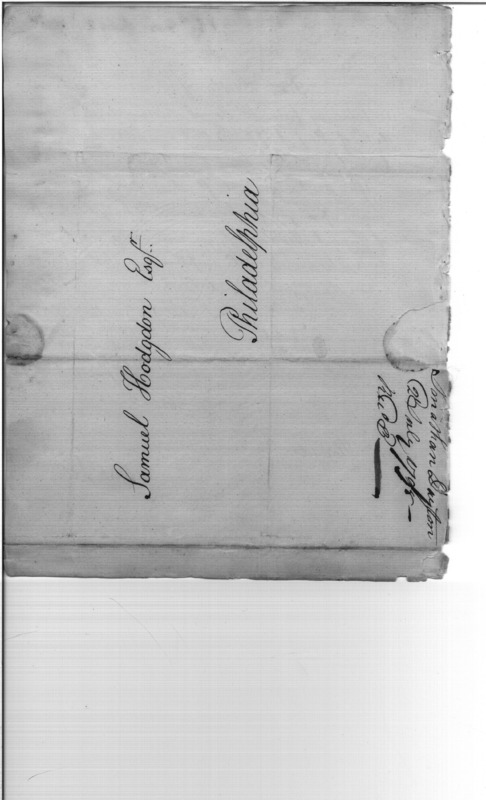 Samuel Hodgdon Esqr.
Philadelphia
Jonathan Dayton
July 1795